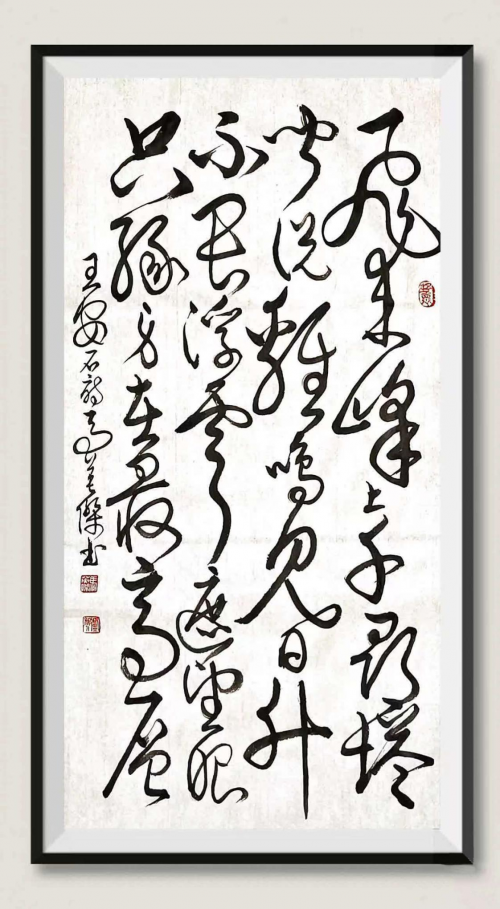 飛来峰上千尋塔
聞說雞鳴見日升
不畏浮雲遮望眼
只緣身在最高層
王安石詩 傑书